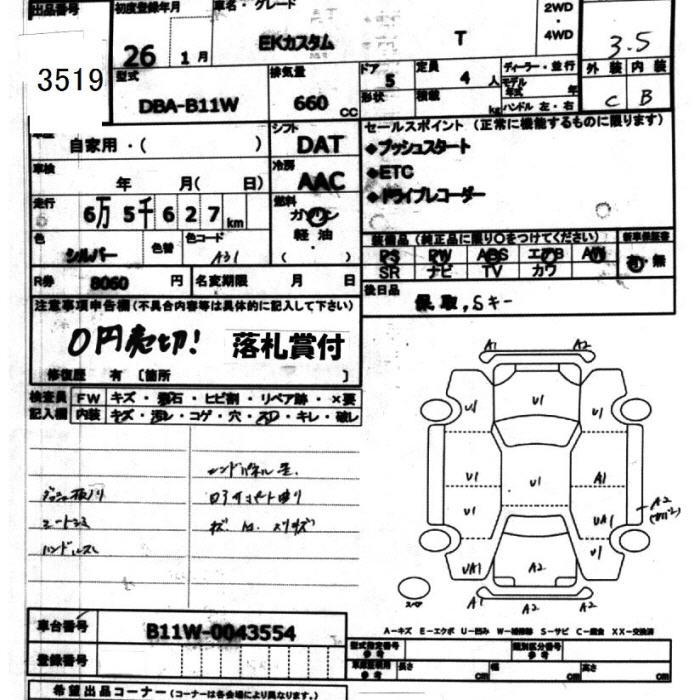 出品番号 初度登録年月 車名・グレード 2WD・4WD
3519 26 1月 EKカスタム T 3.5
型式 排気量 ドア 5 定員 4人 ディーラー・並行 外装 内装
DBA-B11W 660cc 形状 積載 kg モデル年式 年 C B
ハンドル 左・右
自家用・( ) シフト DAT セールスポイント (正常に機能するものに限ります)
◆プッシュスタート
車検 年 月( 日) 冷房 AAC ◆ETC
走行 6万5千627km 燃料 ガソリン・軽油・( ) ◆ドライブレコーダー
色 シルバー 色替 色コード A31 装備品 (純正品に限り○をつけてください) 新車保証書
PS PW ABS エアB AW 有・無
SR ナビ TV カワ
R券 8060円 名変期限 月 日 後日品
保, 取, Sキー
注意事項申告欄 (不具合内容等は具体的に記入して下さい)
0円売切! 落札賞付
修復歴 有 〔箇所 〕
検査員記入欄 FW キズ・飛石・ヒビ割・リペア跡・×要
内装 キズ・汚レ・コゲ・穴・スレ・キレ・破レ
A1 A2
U1 U1 U1
U1 U1 A1
U1 UA1 A2
UA1 A2 U1
スペア A1 A2 A2
A-キズ E-エクボ U-凹み W-補修跡 S-サビ C-腐食 XX-交換済
車台番号 B11W-0043554
型式指定番号 参考 類別区分番号 参考
登録番号 車庫証明用 参考 長さ cm 幅 cm 高さ cm
希望出品コーナー (コーナーは各会場により異なります。)